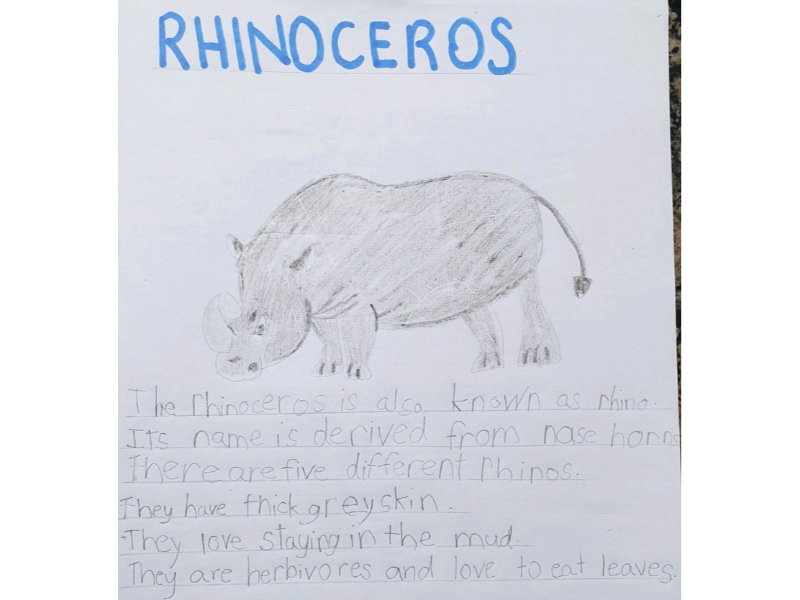 RHINOCEROS
The rhinoceros is also known as rhino.
Its name is derived from nase horns
There are five different rhinos.
They have thick grey skin.
They love staying in the mud.
They are herbivores and love to eat leaves.